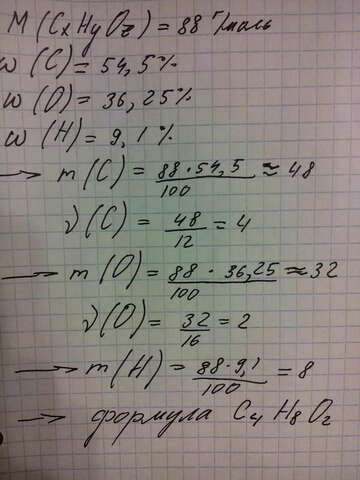 M (CxHyOz) = 88 г/моль
ω (C) = 54,5%
ω (O) = 36,25%
ω (H) = 9,1%
→ m (C) = 88·54,5/100 ≈ 48
ν (C) = 48/12 = 4
→ m (O) = 88·36,25/100 ≈ 32
ν (O) = 32/16 = 2
→ m (H) = 88·9,1/100 = 8
→ формула C4H8O2